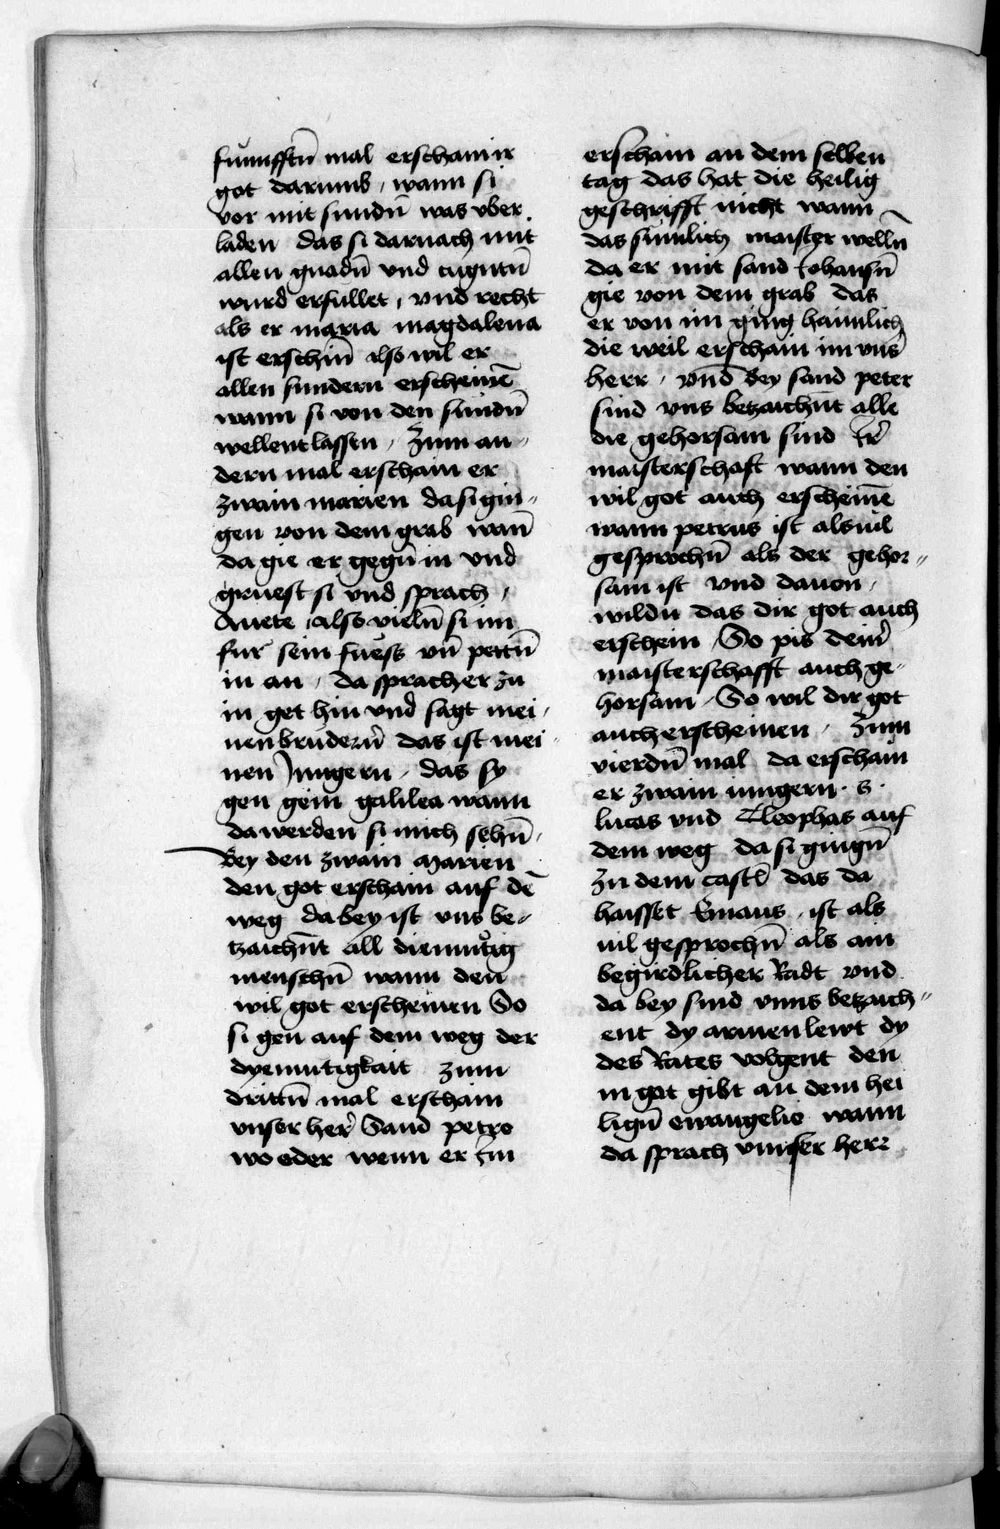 fúnnfftn̄ mal erscham ir
got darumb, wann si
vor mit sundn̄ was vber.
laden das si darnach mit
allen gnadn̄ vnd tugntn̄
wurd erfullet, vnd recht
als er maria magdalena
ist erschin̄ also wil er
allen sundern erscheinē
wann si von den sundn̄
wellent lassen, Zum an„
dern mal erschain er
zwain marien da si gin„
gen von dem grab wan̄
da gie er gegn̄ in vnd
gruest si vnd sprach,
Auete, also vieln̄ si im
fur sein fuͤess vn̄ pettn̄
in an, da sprach er zu
in get hin vnd sagt mei„
nen brudern̄ das ist mei„
nen Jungern, das sy
gen gein galilea wann
da werden si mich sehn̄,
Bey den zwain Marien
den got erschain auf dē
weg da bey ist vns be„
tzaichn̄t all diemuͤtig
menschn̄ wann den
wil got erscheinen So
si gen auf dem weg der
dyemutigkait zum
drittn̄ mal erschain
vnser her̄ Sand petro
wo oder wenn er im
erschain an dem selben
tag das hat die heilig
geschrifft nicht wann
das sumlich maister welln̄
da er mit sand Johansn̄
gie von dem grab das
er von im ging haimlich
die weil erschain im vns̄
herr, vnd bey sand peter
sind vns betzaichn̄t alle
die gehorsam sind Ir̄
maisterschaft wann den
wil got auch erscheinē
wann petrus ist als uil
gesprochn̄ als der gehor„
sam ist vnd dauon,
wildu das dir got auch
erschein, So pis dein̄
maisterschafft auch ge„
horsam, So wil dir got
auch erscheinen, Zum
vierdn̄ mal da erschain
er zwain iungern. s.
lucas vnd Cleophas auf
dem weg da si gingn̄
zu dem castel̄ das da
haisset Emaus, ist als
uil gesprochn̄ als ain
begirdlicher Radt vnd
da bey sind vnns betzaich„
ent dy armen lewt dy
des Rates volgent den
in got gibt an dem hei
lign̄ ewangelio wann
da sprach vnnser herr